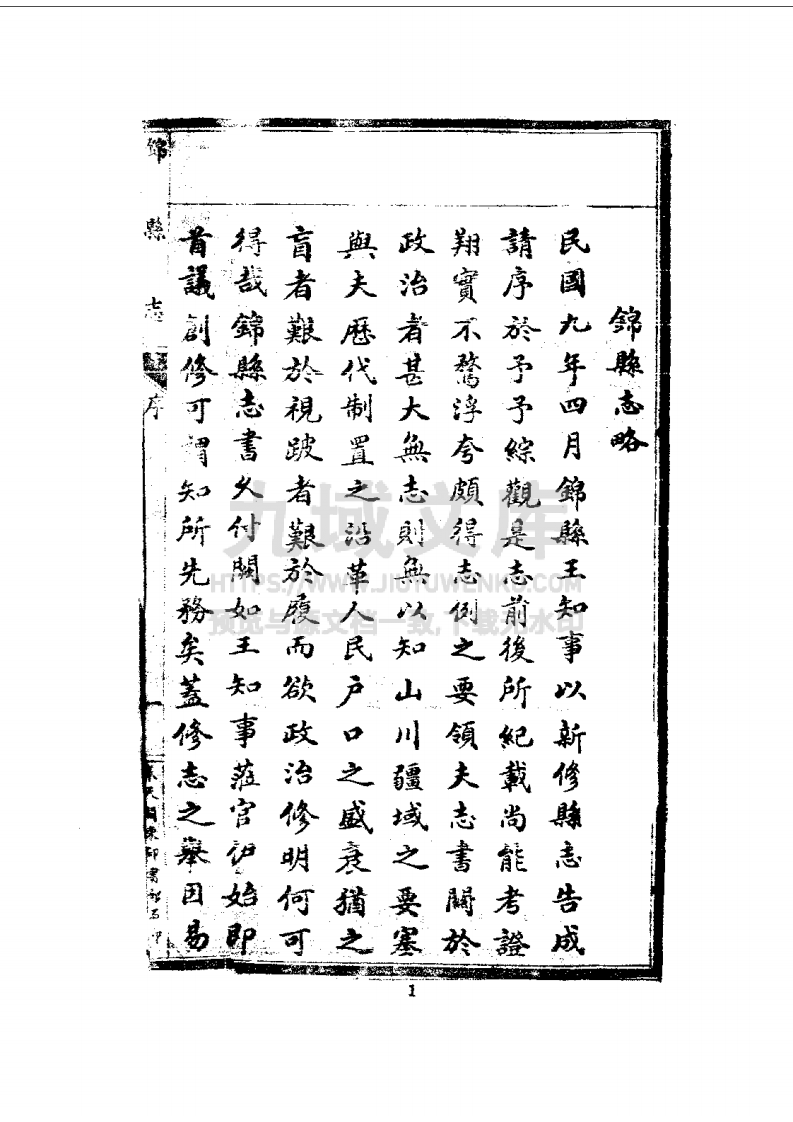 錦縣志略
民國九年四月錦縣王知事以新修縣志告成
請序於予予綜觀是志前後所紀載尚能考證
翔實不騖浮夸頗得志例之要領夫志書關於
政治者甚大無志則無以知山川疆域之要塞
與夫歷代制置之沿革人民戶口之盛衰猶之
盲者艱於視跛者艱於履而欲政治修明何可
得哉錦縣志書久付闕如王知事蒞官伊始即
首議創修可謂知所先務矣蓋修志之舉因易
錦縣志
序
一
九域文库
HTTPS://WWW.JIUYUWENKU.COM
预览与源文档一致,下载无水印
1